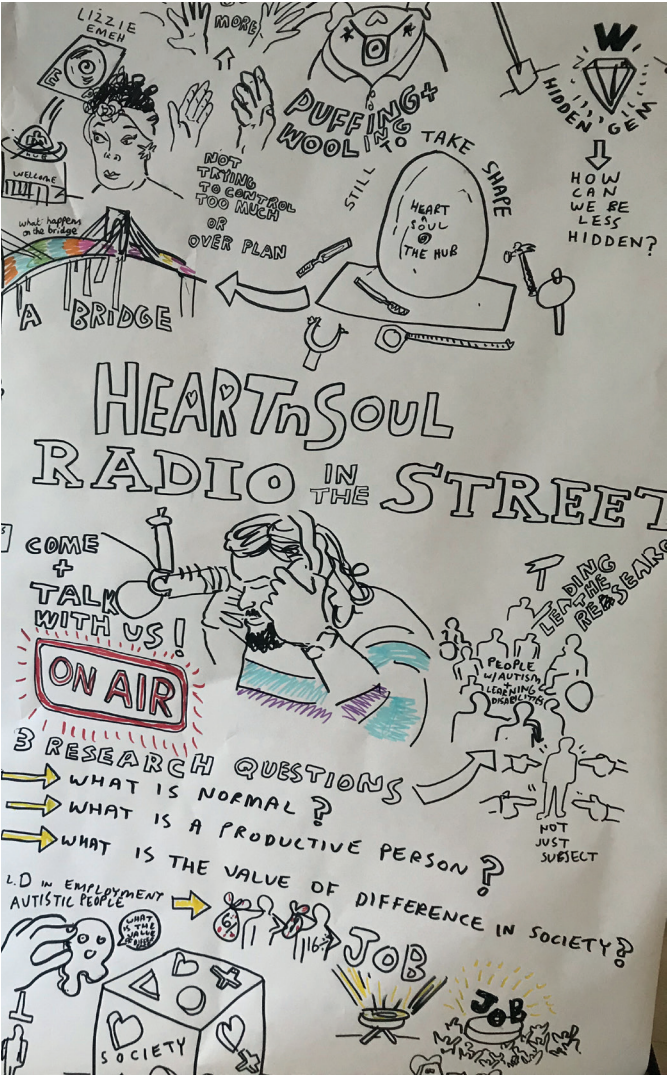 LIZZIE
EMEH
MORE
W
HIDDEN GEM
PUFFING+
WOOLING TO
STILL TAKE SHAPE
HOW
CAN
WE BE
LESS
HIDDEN?
HUB
WELCOME
NOT
TRYING
TO CONTROL
TOO MUCH
OR
OVER PLAN
HEART
n
SOUL
@
THE HUB
what happens
on the bridge
A BRIDGE
HEARTnSOUL
RADIO IN THE STREET
COME
+
TALK
WITH US!
ON AIR
LEADING
THE
RESEARC
PEOPLE
W/AUTISM
+
LEARNING
DISABILITIES
NOT
JUST
SUBJECT
3 RESEARCH QUESTIONS
WHAT IS NORMAL?
WHAT IS A PRODUCTIVE PERSON?
WHAT IS THE VALUE OF DIFFERENCE IN SOCIETY?
L.D IN EMPLOYMENT
AUTISTIC PEOPLE
6%
16%
JOB
WHAT
IS THE
VALUE
JOB
SOCIETY